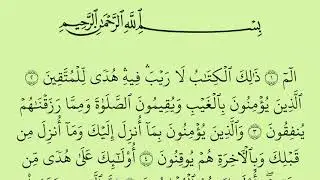 بِسْمِ ٱللَّهِ ٱلرَّحْمَٰنِ ٱلرَّحِيمِ
الٓمٓ ۝١ ذَٰلِكَ ٱلْكِتَٰبُ لَا رَيْبَ ۛ فِيهِ هُدًى لِّلْمُتَّقِينَ ۝٢
ٱلَّذِينَ يُؤْمِنُونَ بِٱلْغَيْبِ وَيُقِيمُونَ ٱلصَّلَوٰةَ وَمِمَّا رَزَقْنَٰهُمْ
يُنفِقُونَ ۝٣ وَٱلَّذِينَ يُؤْمِنُونَ بِمَآ أُنزِلَ إِلَيْكَ وَمَآ أُنزِلَ مِن
قَبْلِكَ وَبِٱلْءَاخِرَةِ هُمْ يُوقِنُونَ ۝٤ أُو۟لَٰٓئِكَ عَلَىٰ هُدًى مِّن